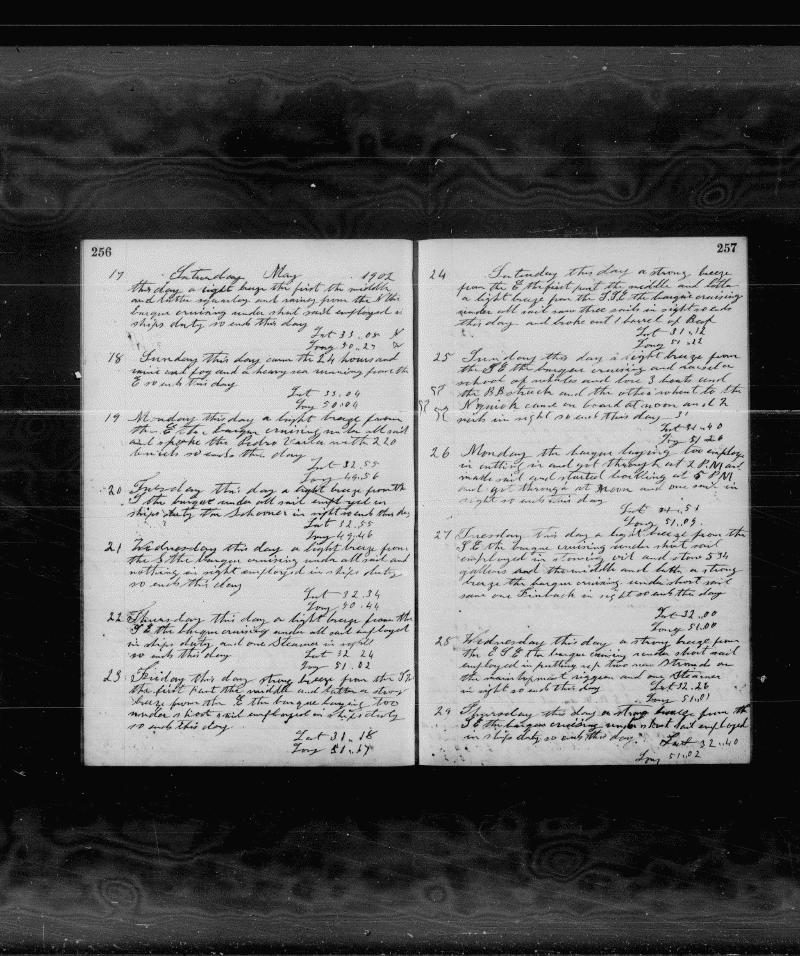 256
17 Saturday May 1902
this day a light breze the first the middle
and latter squarley and rainey from the N the
barque cruising under short sail employed in
ships duty so ends this day
Lat 33.08 N
Long 50.27 W
18 Sunday this day came the 24 hours and
rain and fog and a heavy sea running from the
E so ends this day
Lat 33.04
Long 50.04
19 Monday this day a light breze from
the E the barque cruising under all sail
and spoke the Pedro Varla with 220
barrels so ends this day
Lat 32.55
Long 49.56
20 Tuesday this day a light breze from the
S the barque under all sail employed in
ships duty Schooner in sight so ends this day
Lat 32.55
Long 49.46
21 Wednesday this day a light breze from
the S the barque cruising under all sail and
nothing in sight employed in ships duty
so ends this day
Lat 32.34
Long 50.44
22 Thursday this day a light breze from the
S E the barque cruising under all sail employed
in ships duty and one Steamer in sight
so ends this day Lat 32 24
Long 51.02
23 Friday this day strong breze from the
the first part the middle and latter a strong
breze from the E the barque laying too
under short sail employed in ships duty
so ends this day
Lat 31.18
Long 51.17
257
24 Saturday this day a strong breeze
from the E the first part the middle and latter
a light breze from the S.S.E the barque cruising
under all sail saw three sails in sight so ends
this day and broke out 1 barrel of Beef
Lat 31.12
Long 51.22
25 Sunday this day a light breze from
the S E the barque cruising and raised a
school of whales and lore 3 boats and
the B B struck and the other whent to the
came on board at noon and 2
in sight so ends this day
Lat 31.40
Long 51.20
26 Monday the barque laying too employed
in cutting in and got through at 2 P.M and
made sail and started boiling at 5 P M
and got through at Noon and one sail in
sight so ends this day
Lat 31.51
Long 51.09
27 Tuesday this day a light breze from the
S E the barque cruising under short sail
employed stowing oil and stowe 534
gallons and the middle and latter a strong
breze the barque cruising under short sail
saw one Finback in sight so ends this day
Lat 32.00
Long 51.00
28 Wednesday this day a strong breze from
the E S E the barque cruising under short sail
employed in putting up two new Strands on
the main topmast riggen and one Steamer
in sight so ends this day Lat 32.26
Long 51.01
29 Thursday this day a strong breze from the
S E the barque cruising under short sail employed
in ships duty so ends this day Lat 32.40
Long 51.02